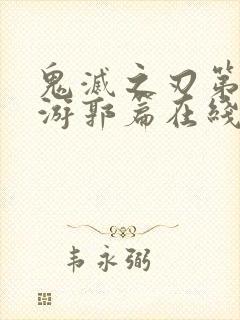 鬼滅之刃第
游郭篇在綫
韦永弼